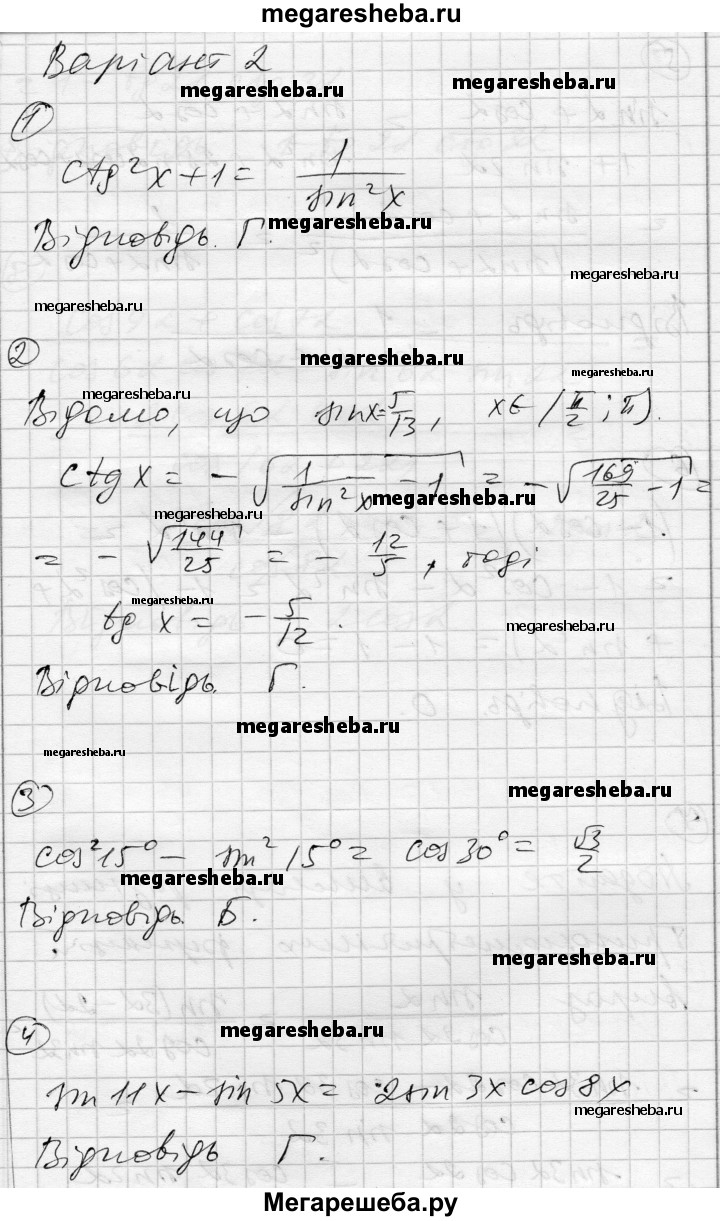 megaresheba.ru
Варіант 2
megaresheba.ru megaresheba.ru
1
ctg²x + 1 = 1/sin²x
Відповідь. Г.
megaresheba.ru
megaresheba.ru
megaresheba.ru
2
megaresheba.ru
megaresheba.ru
megaresheba.ru
Відомо, що sinx = 5/13, x ∈ (π/2; π).
ctg x = -√(1/sin²x - 1) = -√(169/25 - 1) =
megaresheba.ru
megaresheba.ru
= -√(144/25) = -12/5, тоді
megaresheba.ru
tg x = -5/12.
megaresheba.ru
Відповідь. Г.
megaresheba.ru
megaresheba.ru
3
megaresheba.ru
cos²15° - sin²15° = cos30° = √3/2
megaresheba.ru
Відповідь. Б.
megaresheba.ru
4
megaresheba.ru
sin 11x - sin 5x = 2sin 3x cos 8x
megaresheba.ru
Відповідь Г.
Мегарешеба.ру